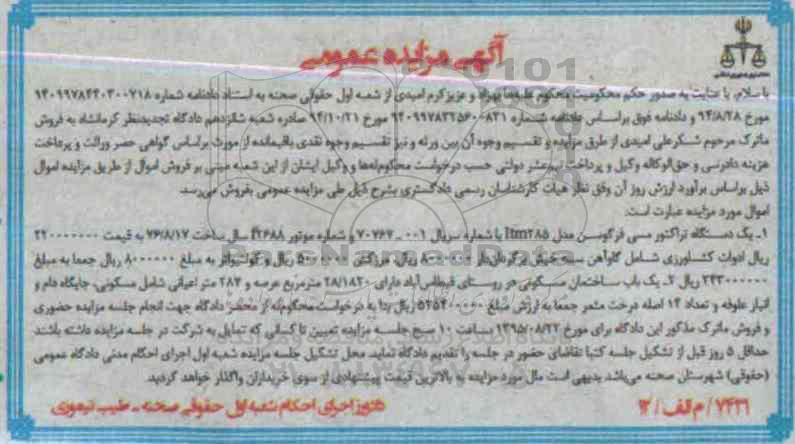 آگهی مزایده عمومی
با سلام، با عنایت به صدور حکم محکومیت محکوم علیه‌ها بهزاد و عزیز کرم امیدی از شعبه اول حقوقی صحنه به استناد دادنامه شماره ۹۴۰۹۹۷۸۴۴۰۳۰۰۷۱۸
مورخ ۹۴/۸/۲۸ و دادنامه فوق براساس دادنامه شماره ۹۴۰۹۹۷۸۳۲۵۶۰۰۸۳۱ مورخ ۹۴/۱۰/۲۱ صادره شعبه شانزدهم دادگاه تجدیدنظر کرمانشاه به فروش
ماترک مرحوم شکرعلی امیدی از طرق مزایده و تقسیم وجوه آن بین ورثه و نیز تقسیم وجوه نقدی باقیمانده از مورث براساس گواهی حصر وراثت و پرداخت
هزینه دادرسی و حق‌الوکاله وکیل و پرداخت نیم‌عشر دولتی حسب درخواست محکوم‌له‌ها و وکیل ایشان از این شعبه مبنی بر فروش اموال از طریق مزایده اموال
ذیل براساس برآورد ارزش روز آن وفق نظر هیات کارشناسان رسمی دادگستری بشرح ذیل طی مزایده عمومی بفروش می‌رسد.
اموال مورد مزایده عبارت است:
۱ـ یک دستگاه تراکتور مسی فرگوسن مدل Itm۲۸۵ با شماره سریال ۰۰۱ـ۷۰۷۶۷ و شماره موتور f۲۶۸۸ سال ساخت ۷۶/۸/۱۷ به قیمت ۲۲۰۰۰۰۰۰۰
ریال ادوات کشاورزی شامل گاوآهن سه خیش برگردان‌دار ۸۰۰۰۰۰۰ ریال، مرزکش ۵۰۰۰۰۰۰ ریال و کولتیواتور به مبلغ ۸۰۰۰۰۰۰ ریال جمعا به مبلغ
۲۴۳۰۰۰۰۰۰ ریال ۲ـ یک باب ساختمان مسکونی در روستای قیطاس‌آباد دارای ۲۸/۱۸۲۰ مترمربع عرصه و ۲۸۲ متر اعیانی شامل مسکونی، جایگاه دام و
انبار علوفه و تعداد ۱۴ اصله درخت مثمر جمعا به ارزش مبلغ ۵۲۵۴۰۰۰۰۰ ریال بنا به درخواست محکوم‌له از محضر دادگاه جهت انجام جلسه مزایده حضوری
و فروش ماترک مذکور این دادگاه برای مورخ ۱۳۹۵/۰۸/۲۲ بساعت ۱۰ صبح جلسه مزایده تعیین تا کسانی که تمایل به شرکت در جلسه مزایده داشته باشند
حداقل ۵ روز قبل از تشکیل جلسه کتبا تقاضای حضور در جلسه را تقدیم دادگاه نماید. محل تشکیل جلسه مزایده شعبه اول اجرای احکام مدنی دادگاه عمومی
(حقوقی) شهرستان صحنه می‌باشد بدیهی است مال مورد مزایده به بالاترین قیمت پیشنهادی از سوی خریداران واگذار خواهد گردید.
۷۴۳۱/م الف/۱۲
دادورز اجرای احکام شعبه اول حقوقی صحنه ـ طیب تیموری